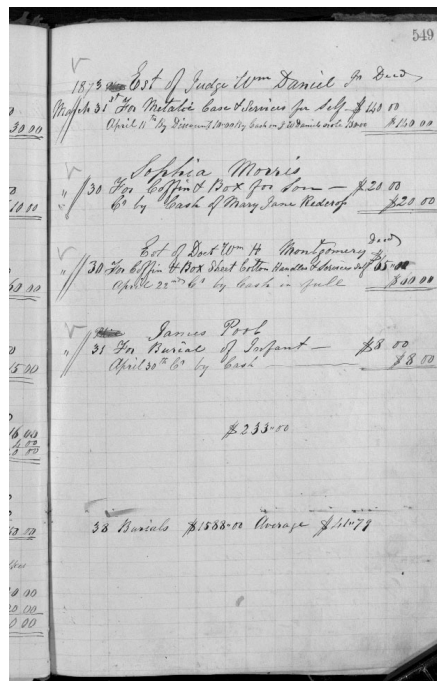 549
1873 Est of Judge Wm Daniel Jr Decd
March 31st For Metalic Case & Services for Self — $140 00
April 11th By Discount by Cash $140.00
Sophia Morris
" 30 For Coffin & Box for Son — $20 00
Cr by Cash of Mary Jane Redcrop $20 00
Est of Doct Wm H Montgomery Decd
" 30 For Coffin & Box Sheet Cotton Handles & Services Self $65-00
April 22nd Cr by Cash in full $60 00
James Pool
31 For Burial of Infant — $8 00
April 30th Cr by Cash — $8 00
$233-00
38 Burials $1588-00 Average $41-79
30 00
10 00
60 00
15 00
16 00
4 00
0 00
50 00
0 00
0 00
0 00